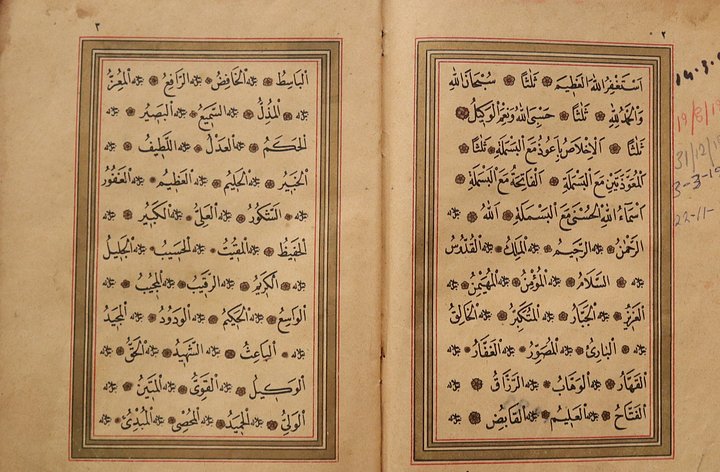 ٢
اَسْتَغْفِرُ اللّٰهَ الْعَظِيمَ ثَلَثًا سُبْحَانَ اللّٰهِ
وَالْحَمْدُ لِلّٰهِ ثَلَثًا حَسْبِيَ اللّٰهُ وَنِعْمَ الْوَكِيلُ
ثَلَثًا اَلْاِخْلَاصُ بِاَعُوذُ مَعَ الْبَسْمَلَةِ ثَلَثًا
اَلْمُعَوَّذَتَيْنِ مَعَ الْبَسْمَلَةِ اَلْفَاتِحَةُ مَعَ الْبَسْمَلَةِ
اَسْمَاءُ اللّٰهِ الْحُسْنٰى مَعَ الْبَسْمَلَةِ اَللّٰهُ
اَلرَّحْمٰنُ اَلرَّحِيمُ اَلْمَلِكُ اَلْقُدُّسُ
اَلسَّلَامُ اَلْمُؤْمِنُ اَلْمُهَيْمِنُ
اَلْعَزِيزُ اَلْجَبَّارُ اَلْمُتَكَبِّرُ اَلْخَالِقُ
اَلْبَارِئُ اَلْمُصَوِّرُ اَلْغَفَّارُ
اَلْقَهَّارُ اَلْوَهَّابُ اَلرَّزَّاقُ
اَلْفَتَّاحُ اَلْعَلِيمُ اَلْقَابِضُ
19/8/1
31/12/19
3-3-19
22-11-
٣
اَلْبَاسِطُ اَلْخَافِضُ اَلرَّافِعُ اَلْمُعِزُّ
اَلْمُذِلُّ اَلسَّمِيعُ اَلْبَصِيرُ
اَلْحَكَمُ اَلْعَدْلُ اَللَّطِيفُ
اَلْخَبِيرُ اَلْحَلِيمُ اَلْعَظِيمُ اَلْغَفُورُ
اَلشَّكُورُ اَلْعَلِيُّ اَلْكَبِيرُ
اَلْحَفِيظُ اَلْمُقِيتُ اَلْحَسِيبُ اَلْجَلِيلُ
اَلْكَرِيمُ اَلرَّقِيبُ اَلْمُجِيبُ
اَلْوَاسِعُ اَلْحَكِيمُ اَلْوَدُودُ اَلْمَجِيدُ
اَلْبَاعِثُ اَلشَّهِيدُ اَلْحَقُّ
اَلْوَكِيلُ اَلْقَوِيُّ اَلْمَتِينُ
اَلْوَلِيُّ اَلْحَمِيدُ اَلْمُحْصِى اَلْمُبْدِئُ